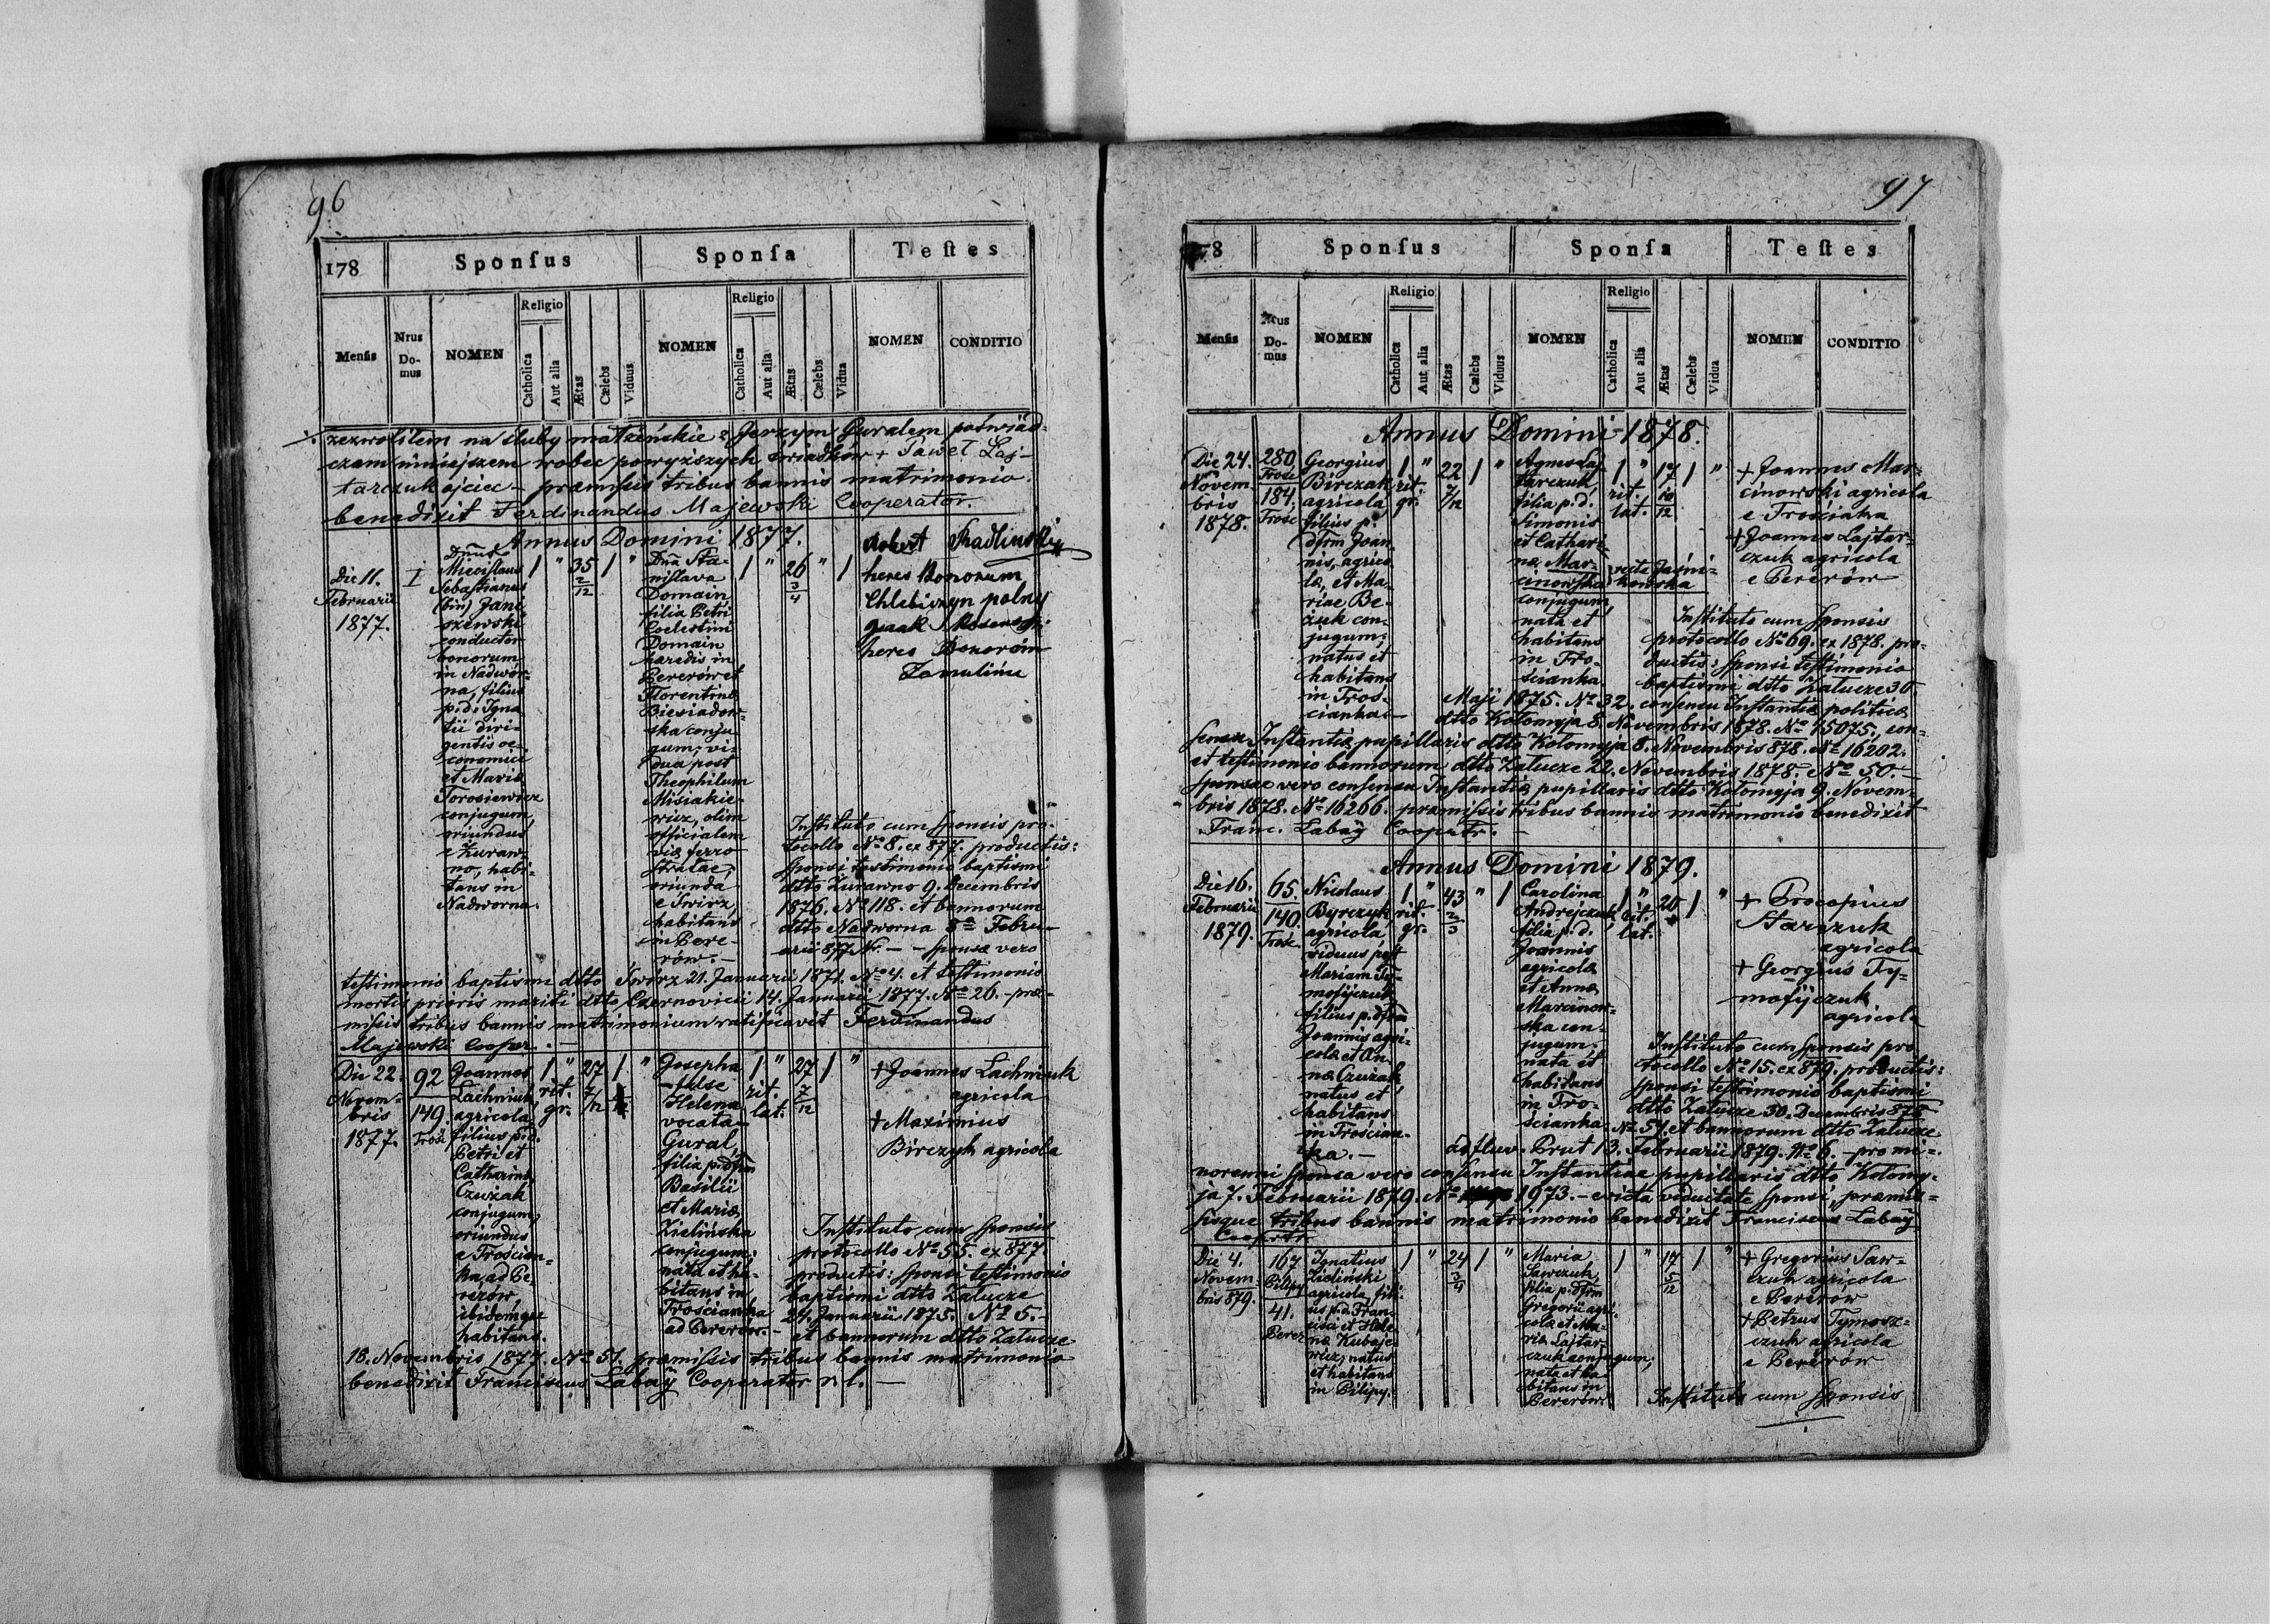 96
178
Sponſus
Sponſa
Teſtes
Menſis
Nrus Domus
NOMEN
Religio
Catholica
Aut alia
Ætas
Cælebs
Viduus
NOMEN
Religio
Catholica
Aut alia
Ætas
Cælebs
Vidua
NOMEN
CONDITIO
zezwoliłem na śluby małżeńskie z Jerzym Guralem poświad-
czam niniejszem wobec powyższych świadków + Paweł Łaj-
tarczuk ojciec – præmissis tribus bannis matrimonio
benedixit Ferdinandus Majewski Cooperator.
Annus Domini 1877.
Die 11.
Februarii
1877.
I
Dnus
Miecislaus
Sebastianus
(bin) Jani-
szewski
conductor
bonorum
in Nadwór-
na, filius
p.d. Igna
tii diri-
gentis oe-
conomici
et Mariæ
Torosiewicz
conjugum,
oriundus
e Żuraw-
no, habi-
tans in
Nadworna.
1 " 35 2/12 1 "
Dna Sta-
nislava
Domain
filia Petri
Coelestini
Domain
hæredis in
Pererów et
Florentinæ
Biesiadow-
ska conju
gum, vi-
dua post
Theophilum
Misiakie-
wicz, olim
officialem
viæ ferro
stratae,
oriunda
e Swirz
habitans
in Pere-
rów. –
1 " 26 3/4 " 1
Robert
heres Bonorum
Chlebiczyn polny
heres Bonorum
Instituto cum sponsis pro-
tocollo No 8. ex 877. productis:
sponsi testimonio baptismi
dtto Żurawno 9. Decembris
1876. No 118. et bannorum
dtto Nadworna 8a Febru-
arii 877 No. – – sponsæ vero
testimonio baptismi dtto Swirz 21. Januarii 1871. No 4. et testimonio
mortis prioris mariti dtto Czernovicii 14. Januarii 1877. No 26. – præ-
missis tribus bannis matrimonium ratificavit Ferdinandus
Majewski Cooper. –
Die 22.
Novem-
bris
1877.
92
149.
Trość
Joannes
Lachniuk
agricola
filius p.d.
Petri et
Catharinæ
Czużak
conjugum,
oriundus
e Trościan-
ka, ad Pe-
rerów,
ibidemque
habitans.
1 " 27 7/12 1 "
rit.
gr.
Josepha
– false
Helena
vocata –
Gural,
filia p. dfm
Basilii
et Mariæ
Zielińska
conjugum;
nata et ha-
bitans in
Trościanka
ad Pererów. –
1 " 27 7/12 1 "
rit.
lat.
+ Joannes Lachniuk
agricola
+ Maximius
Birczyk agricola
Instituto cum sponsis
protocollo No 55. ex 877
productis: sponsi testimonio
baptismi dtto Załucze
24. Januarii 1875. No 5. –
et bannorum dtto Załucze
18. Novembris 1877. No 51. præmissis tribus bannis matrimonio
benedixit Franciscus Łabay Cooperator r. l. –
97
8
Sponſus
Sponſa
Teſtes
Menſis
Nrus Domus
NOMEN
Religio
Catholica
Aut alia
Ætas
Cælebs
Viduus
NOMEN
Religio
Catholica
Aut alia
Ætas
Cælebs
Vidua
NOMEN
CONDITIO
Annus Domini 1878.
Die 24.
Novem-
bris
1878.
280.
Trość
184.
Trość
Georgius
Birczak
agricola
filius p.
dfm Joan-
nis, agrico-
læ, et Ma-
riae Be-
żuk con-
jugum;
natus et
habitans
in Tros-
cianka. –
1 " 22 7/12 1 "
rit.
gr.
Agnes Łaj-
tarczuk,
filia p.d.
Simonis
et Cathari-
næ Mar-
cinowska
recte Jaśni-
kowska
conjugum,
nata et
habitans
in Tro-
ścianka
1 " 17 10/12 1 "
rit.
lat.
+ Joannes Mar-
cinowski agricola
e Trościanka
+ Joannes Łajtar-
czuk agricola
e Pererów
Instituto cum sponsis
protocollo No 69. ex 1878. pro-
ductis: sponsi testimonio
baptismi dtto Załucze 30
Maji 1875. No 32. consensu Instantiæ politicæ
dtto Kołomyja 8. Novembris 1878. No 15075., con-
sensu Instantiæ pupillaris dtto Kołomyja 8. Novembris 878. No 16202.
et testimonio bannorum dtto Załucze 22. Novembris 1878. No 50. –
sponsæ vero consensu Instantiæ pupillaris dtto Kołomyja 9. Novem-
bris 1878. No 16266. præmissis tribus bannis matrimonio benedixit
Franc. Łabay Cooprtr. –
Annus Domini 1879.
Die 16.
Februarii
1879.
65.
140.
Trość.
Nicolaus
Byrczyk
agricola
viduus post
Mariam Ty-
mofijczuk
filius p. dfm
Joannis agri-
colæ et An-
næ Czużak,
natus et
habitans
in Trościan-
ka. –
1 " 43 2/3 " 1
rit.
gr.
Carolina
Andrejczuk
filia p.d.
Joannis
agricolæ
et Annæ
Marcinow-
ska con-
jugum.
nata et
habitans
in Tro-
ścianka
1 " 20 1 "
rit.
lat.
+ Procopius
Starczuk
agricola
+ Georgius Ty-
mofijczuk
agricola
Instituto cum sponsis pro
tocollo No 15. ex 879. productis:
sponsi testimonio baptismi
dtto Załucze 30. Decembris 878
No 51. et bannorum dtto Załucze
ad fluv. Prut 13. Februarii 1879. No 6. – pro mi-
norenni sponsa vero consensu Instantiae pupillaris dtto Kołomy-
ja 7. Februarii 1879. No 1973. – evicta viduitate sponsi, præmis-
sisque tribus bannis matrimonio benedixit Franciscus Łabay
Cooprtr.
Die 4.
Novem-
bris 879.
167
Pilipy
41.
Perer
Ignatius
Zieliński
agricola, fili-
us p.d. Fran-
cisci et Hele-
næ Kubaje-
wicz, natus
et habitans
in Pilipy.
1 " 24 3/4 1 "
Maria
Sawczuk,
filia p. dfm
Gregorii agri-
colæ et Ma-
riæ Łajtar-
czuk conjugum,
nata et ha-
bitans in
Pererów.
1 " 17 5/12 1 "
+ Gregorius Saw-
czuk agricola
e Pererów
+ Petrus Tymosz-
czuk agricola
e Pererów
Instituto cum sponsis